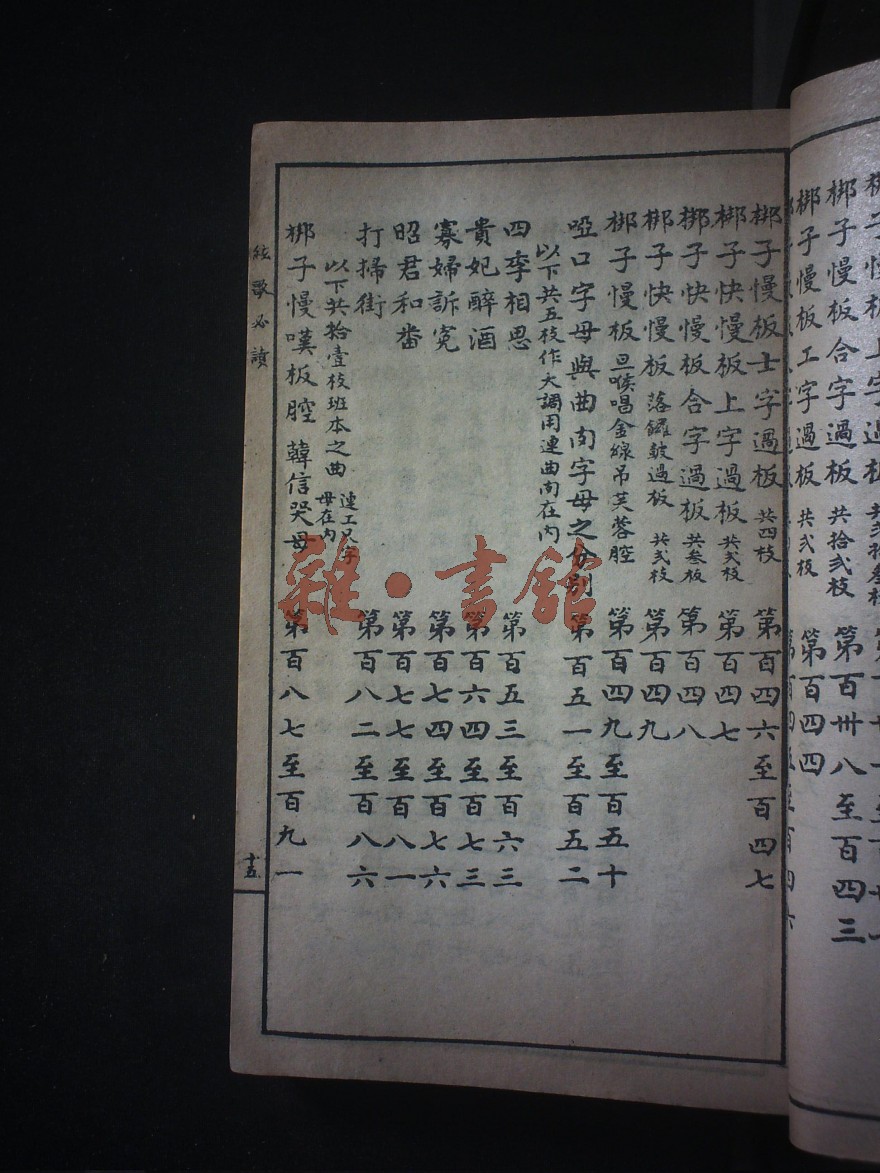 梆子慢板合字過板 共拾弍枝 第百卅八至百四三
梆子慢板工字過板 共弍枝 第百四四
梆子慢板士字過板 共四枝 第百四六至百四七
梆子快慢板上字過板 共弍枝 第百四七
梆子快慢板合字過板 共叁板 第百四八
梆子快慢板 落鑼皷過板 共弍枝 第百四九
梆子慢板 旦喉唱金線吊芙蓉腔 第百四九至百五十
啞口字母與曲肉字母之分別 第百五一至百五二
以下共五枝作大調用連曲肉在內
四季相思 第百五三至百六三
貴妃醉酒 第百六四至百七三
寡婦訴寃 第百七四至百七六
昭君和番 第百七七至百八一
打掃街 第百八二至百八六
以下共拾壹枝班本之曲 連工尺字母在內
梆子慢嘆板腔 韓信哭母 第百八七至百九一
絃歌必讀
十五
雜·書館